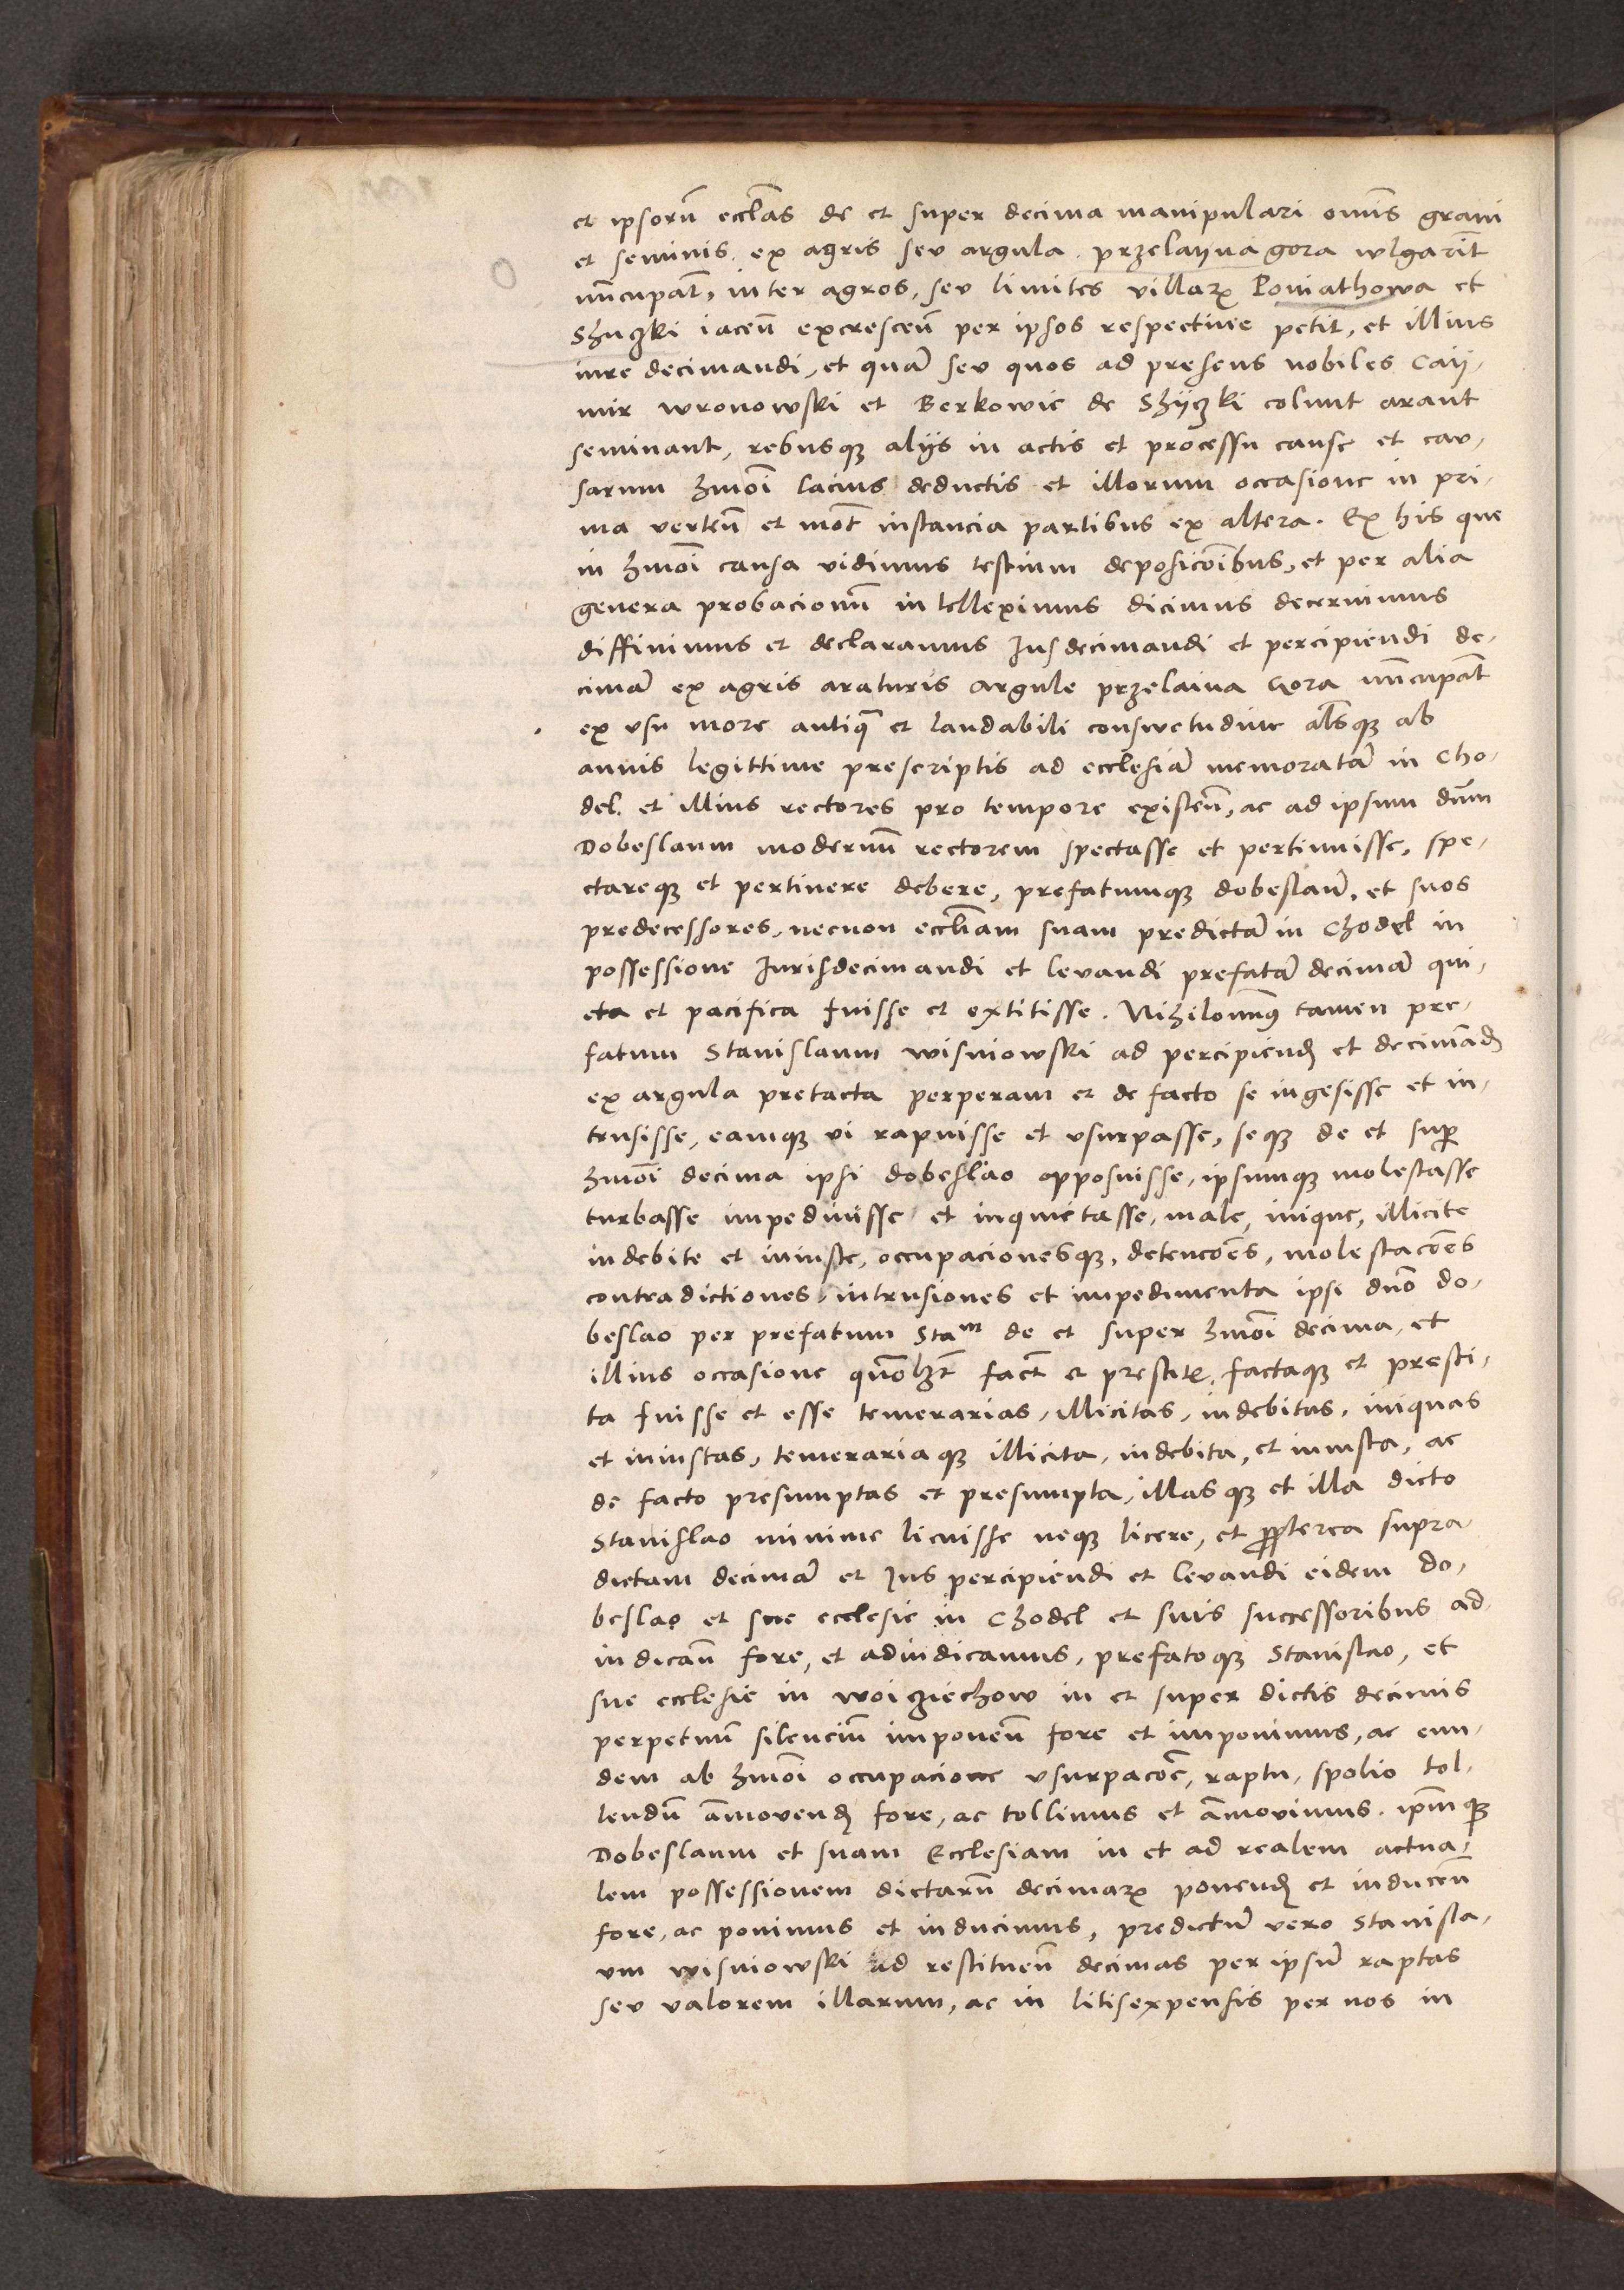 et ipsorū eccl̄as de et super decima manipulari om̄is grani
et seminis, ex agris seu argula, przelayna gora wlgarit̄
nūcupat̄, inter agros, seu limites villarꝝ Poniathowa et
Shuczki iaceñ excresceñ per ipsos respectiue petit̄, et illius
iure decimandi, et quā seu quos ad presens nobiles Caÿ-
mir wronowski et Berkowic de Shÿczki colunt arant
seminant, rebusqꝫ alijs in actis et processu cause et cau-
sarum hmōi lacius deductis et illorum occasione in pri-
ma verteñ et mot̄ instancia partibus ex altera. Ex his que
in hmōi causa vidimus testium deposicōibus, et per alia
genera probacionū intelleximus dicimus decernimus
diffinimus et declaramus Jusdecimandi et percipiendi de-
cimā ex agris araturis argule przelaina Gora nūcupat̄
ex vsu more antiqꝫ et laudabili conswetudine al̄sqꝫ ab
annis legittime prescriptis ad ecclesiā memoratā in Cho-
del. et illius rectores pro tempore existeñ, ac ad ipsum dn̄m
Dobeslaum modernū rectorem spectasse et pertinuisse, spe-
ctareqꝫ et pertinere debere, prefatumqꝫ dobeslaū, et suos
predecessores, necnon eccl̄iam suam predictā in Chodel in
possessione Jurisdecimandi et levandi prefatā decimā qui-
eta et pacifica fuisse et extitisse. Nihilomin9 tamen pre-
fatum Stanislaum wisniowski ad percipiend̄ et decimād̄
ex argula pretacta perperam et de facto se ingesisse et in-
trusisse, eamqꝫ vi rapuisse et vsurpasse, seqꝫ de et suꝑ
hmōi decima ipsi dobeslao opposuisse, ipsumqꝫ molestasse
turbasse impedivisse et inquietasse, male, inique, illicite
indebite et iniuste, occupacionesqꝫ, detencōes, molestacōes
contradictiones, intrusiones et impedimenta ipse dn̄o do-
beslao per prefatum Staᵐ de et super hmōi decima, et
illius occasione quōlꝫt fact̄ et prestit̄. factaqꝫ et presti-
ta fuisse et esse temerarias, illicitas, indebitas, iniquas
et iniustas, temerariaqꝫ illicita, indebita, et iniusta, ac
de facto presumptas et presumpta, illasqꝫ et illa dicto
Stanislao minime licuisse neqꝫ licere, et ꝓpterea supra-
dictam decimā et Jus percipiendi et levandi eidem do-
beslao et sue ecclesie in Chodel et suis successoribus ad-
iudicañ fore, et adiudicamus, prefatoqꝫ Stanislao, et
sue ecclesie in woiczechow in et super dictis decimis
perpetuū silenciū imponeñ fore et imponimus, ac eun-
dem ab hmōi occupacione vsurpacōe, raptu, spolio tol-
lendū āmovend̄ fore, ac tollimus et āmovimus. ip̄mqꝫ
Dobeslaum et suam Ecclesiam in et ad realem actua-
lem possessionem dictarū decimarꝝ ponend̄ et induceñ
fore, ac ponimus et inducimus, predictū vero Stanisla-
um wisniowski ad restitueñ decimas per ipsū raptas
seu valorem illarum, ac in litisexpensis per nos in